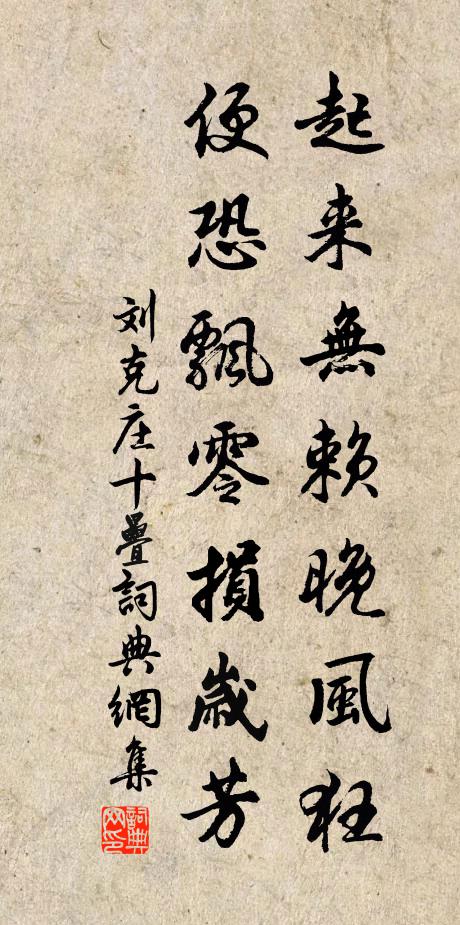 起来無賴晚風狂
便恐飄零損歲芳
刘克庄十疊詞典網集
詞典網印